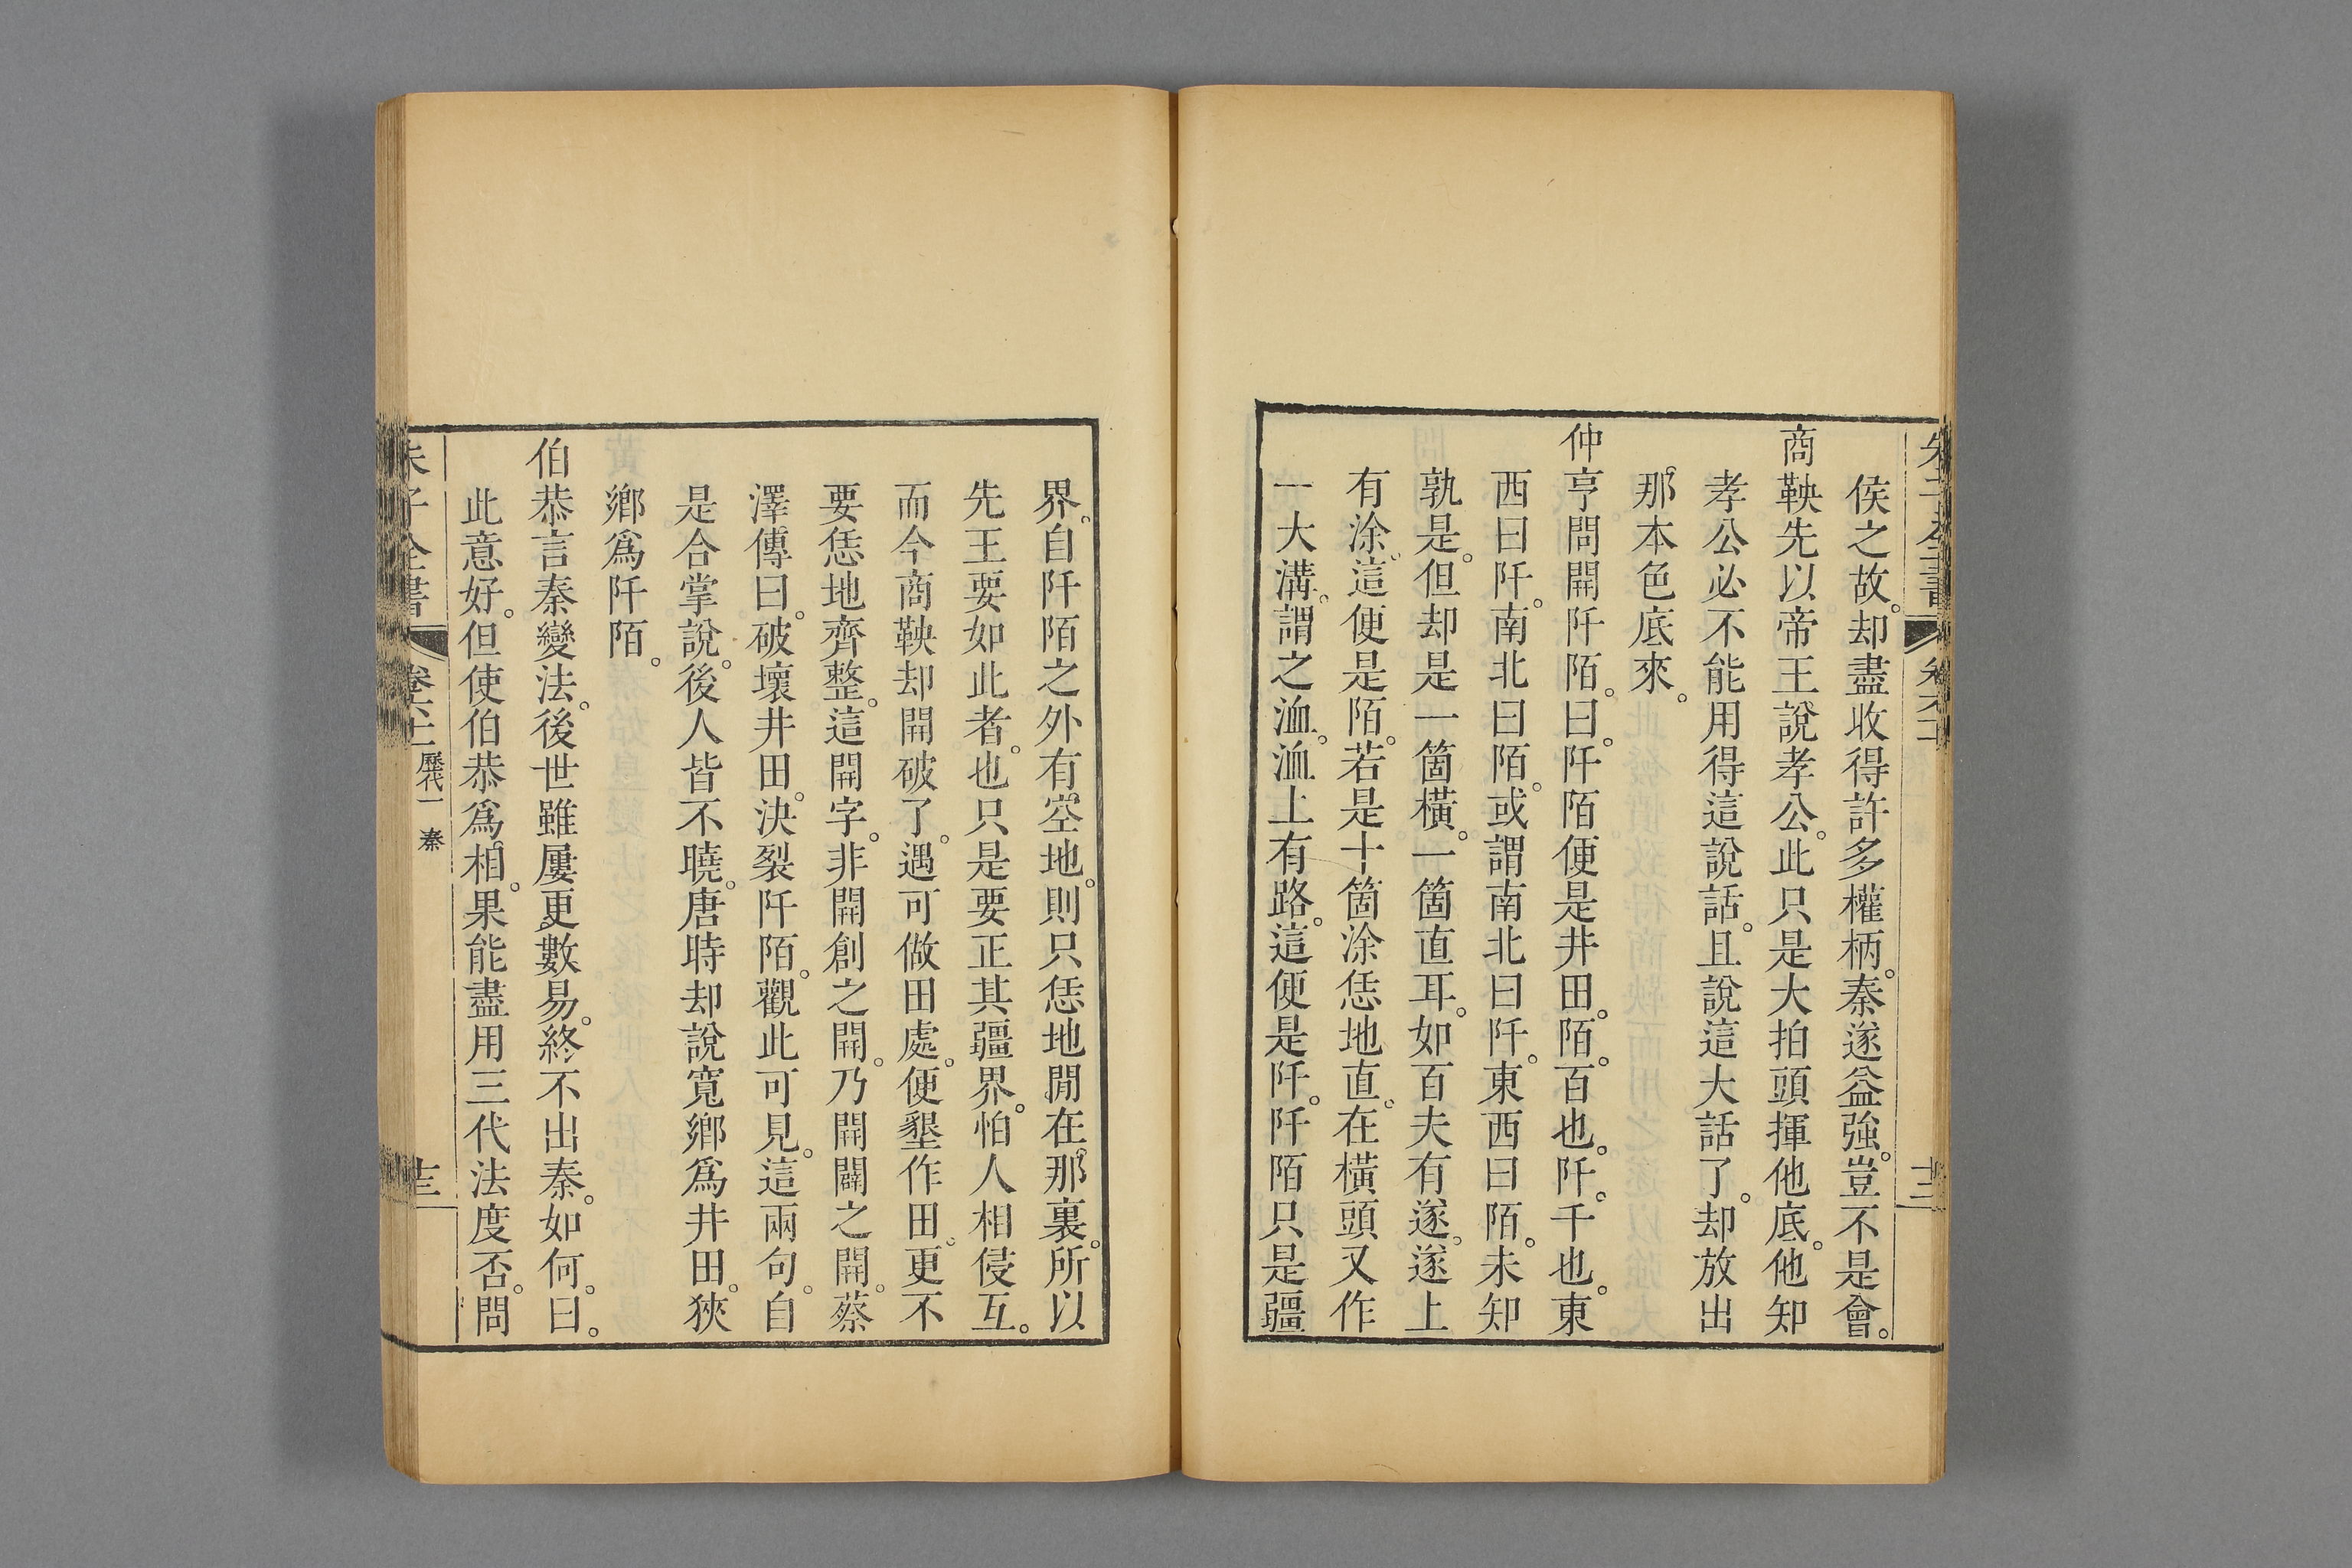 侯之故。却盡收得許多權柄。秦遂益強。豈不是會。
商鞅先以帝王說孝公。此只是大拍頭揮他底。他知
孝公必不能用得這說話。且說這大話了。却放出
那本色底來。
仲亨問開阡陌。曰。阡陌便是井田。陌。百也。阡。千也。東
西曰阡。南北曰陌。或謂南北曰阡。東西曰陌。未知
孰是。但却是一箇橫。一箇直耳。如百夫有遂。遂上
有涂。這便是陌。若是十箇涂恁地直。在橫頭又作
一大溝。謂之洫。洫上有路。這便是阡。阡陌只是疆
界。自阡陌之外有空地。則只恁地閒在那裏。所以
先王要如此者。也只是要正其疆界。怕人相侵互。
而今商鞅却開破了。遇可做田處。便墾作田。更不
要恁地齊整。這開字。非開創之開。乃開闢之開。蔡
澤傳曰。破壞井田。決裂阡陌。觀此可見。這兩句。自
是合掌說。後人皆不曉。唐時却說寬鄉爲井田。狹
鄉爲阡陌。
伯恭言秦變法。後世雖屢更數易。終不出秦。如何。曰。
此意好。但使伯恭爲相。果能盡用三代法度否。問
朱子全書 卷六十一 歷代一 秦 十三